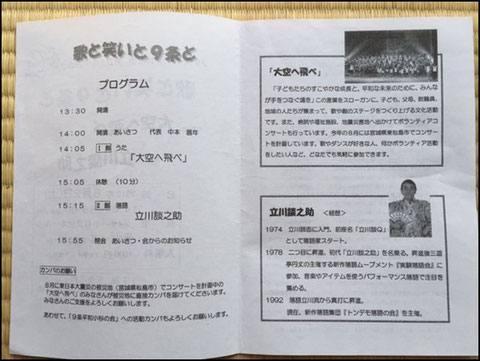 歌と笑いと9条と
プログラム
13:30 開場
14:00 開演 あいさつ 代表 中本
14:05 Ⅰ部 うた
「大空へ飛べ」
15:05 休憩 (10分)
15:15 Ⅱ部 落語
立川談之助
15:55 閉会 あいさつ・会からのお知らせ
カンパのお願い
8月に東日本大震災の被災地(宮城県東松島市)でコンサートを計画中の
「大空へ飛べ」のみなさんが被災地に直接カンパを届けてくださいます。
みなさんのご支援をよろしくお願いします。
あわせて、「9条平和小杉の会」への活動カンパもよろしくお願いします。
「大空へ飛べ」
「子どもたちのすこやかな成長と、平和な未来のために、みんな
が手をつなぐ場を」この言葉をスローガンに、子ども、父母、教職員、
地域の人たちが集まって、歌や劇のステージをつくり上げる文化活動
です。また、病院や福祉施設、地震災害地へ出かけてボランティアコ
ンサートも行っています。今年の8月には宮城県東松島市でコンサー
トを計画しています。歌やダンスが好きな人、何かボランティア活動
をしたい人など、どなたでも気軽に参加できます。
立川談之助 <経歴>
1974 立川談志に入門。前座名「立川談Q」
として落語家スタート。
1978 二つ目に昇進。初代「立川談之助」を名乗る。昇進後三遊
亭円丈の主催する新作落語ムーブメント『実験落語会』に参
加。音楽やアイテムを使うパフォーマンス落語で注目を
集める。
1992 落語立川流から真打に昇進。
現在、新作落語集団『トンデモ落語の会』を主催。